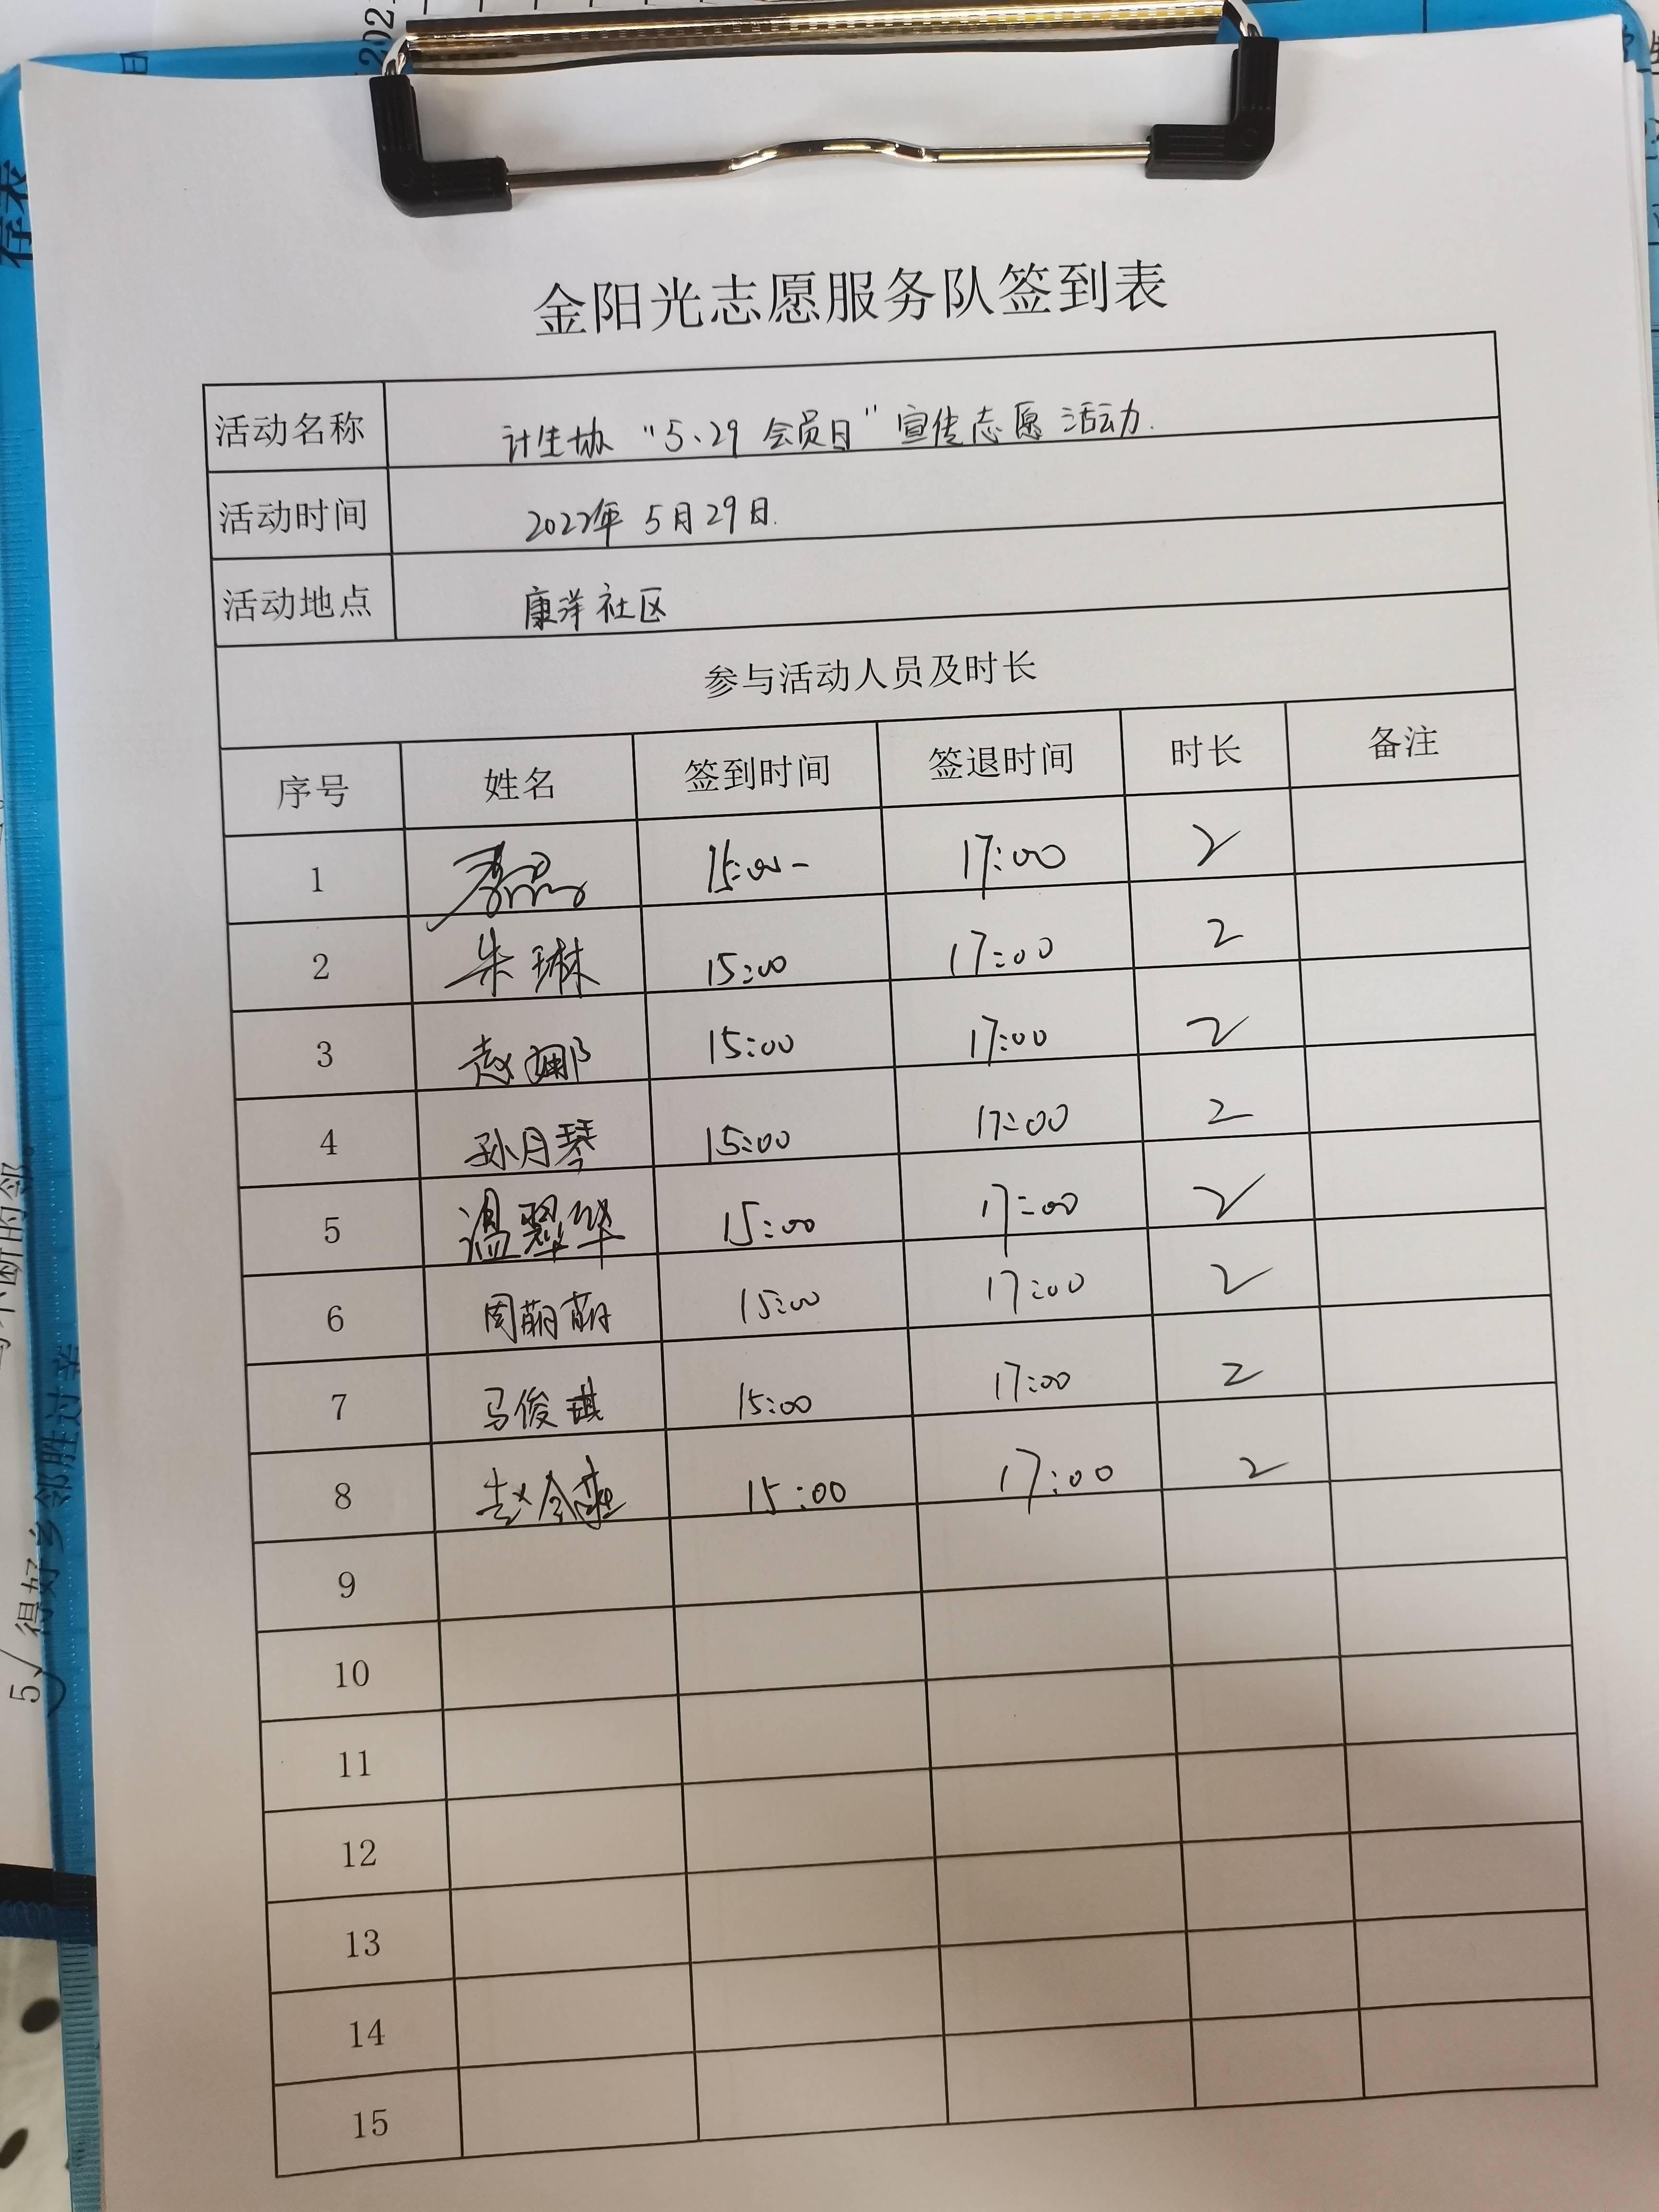 金阳光志愿服务队签到表
活动名称 计生协“5、29 会员日”宣传志愿活动.
活动时间 2022年5月29日.
活动地点 康洋社区
参与活动人员及时长
序号 姓名 签到时间 签退时间 时长 备注
1 15:00- 17:00 2
2 朱琳 15:00 17:00 2
3 赵娜 15:00 17:00 2
4 孙月琴 15:00 17:00 2
5 温翠华 15:00 17:00 2
6 周萌萌 15:00 17:00 2
7 马俊琪 15:00 17:00 2
8 15:00 17:00 2
9
10
11
12
13
14
15
存表
5√得好乡邻胜过亲